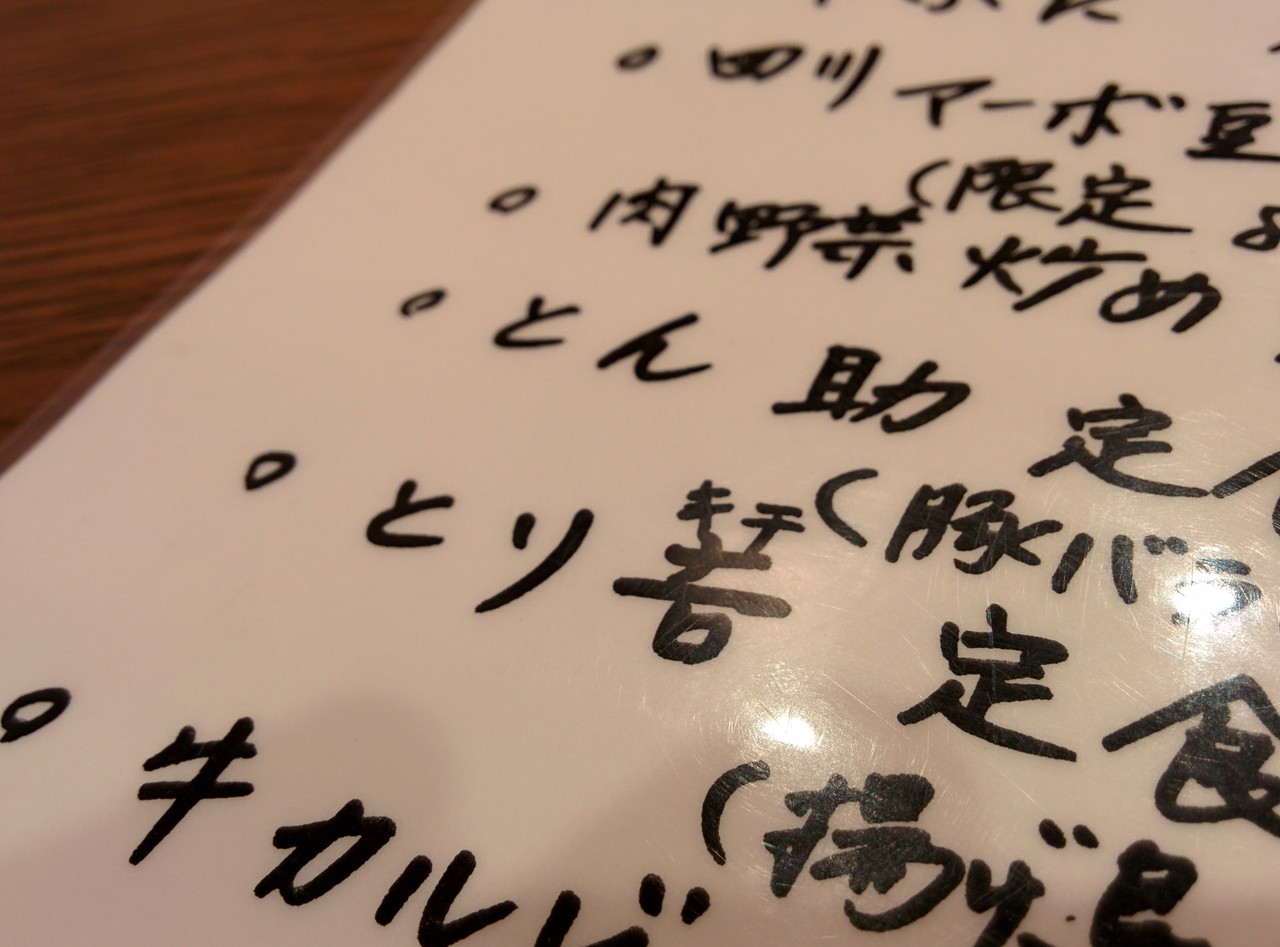 四川マーボ豆
(限定
肉野菜炒め
とん助定
(豚バラ
とり吉キチ定食
(揚げ
牛カルビ